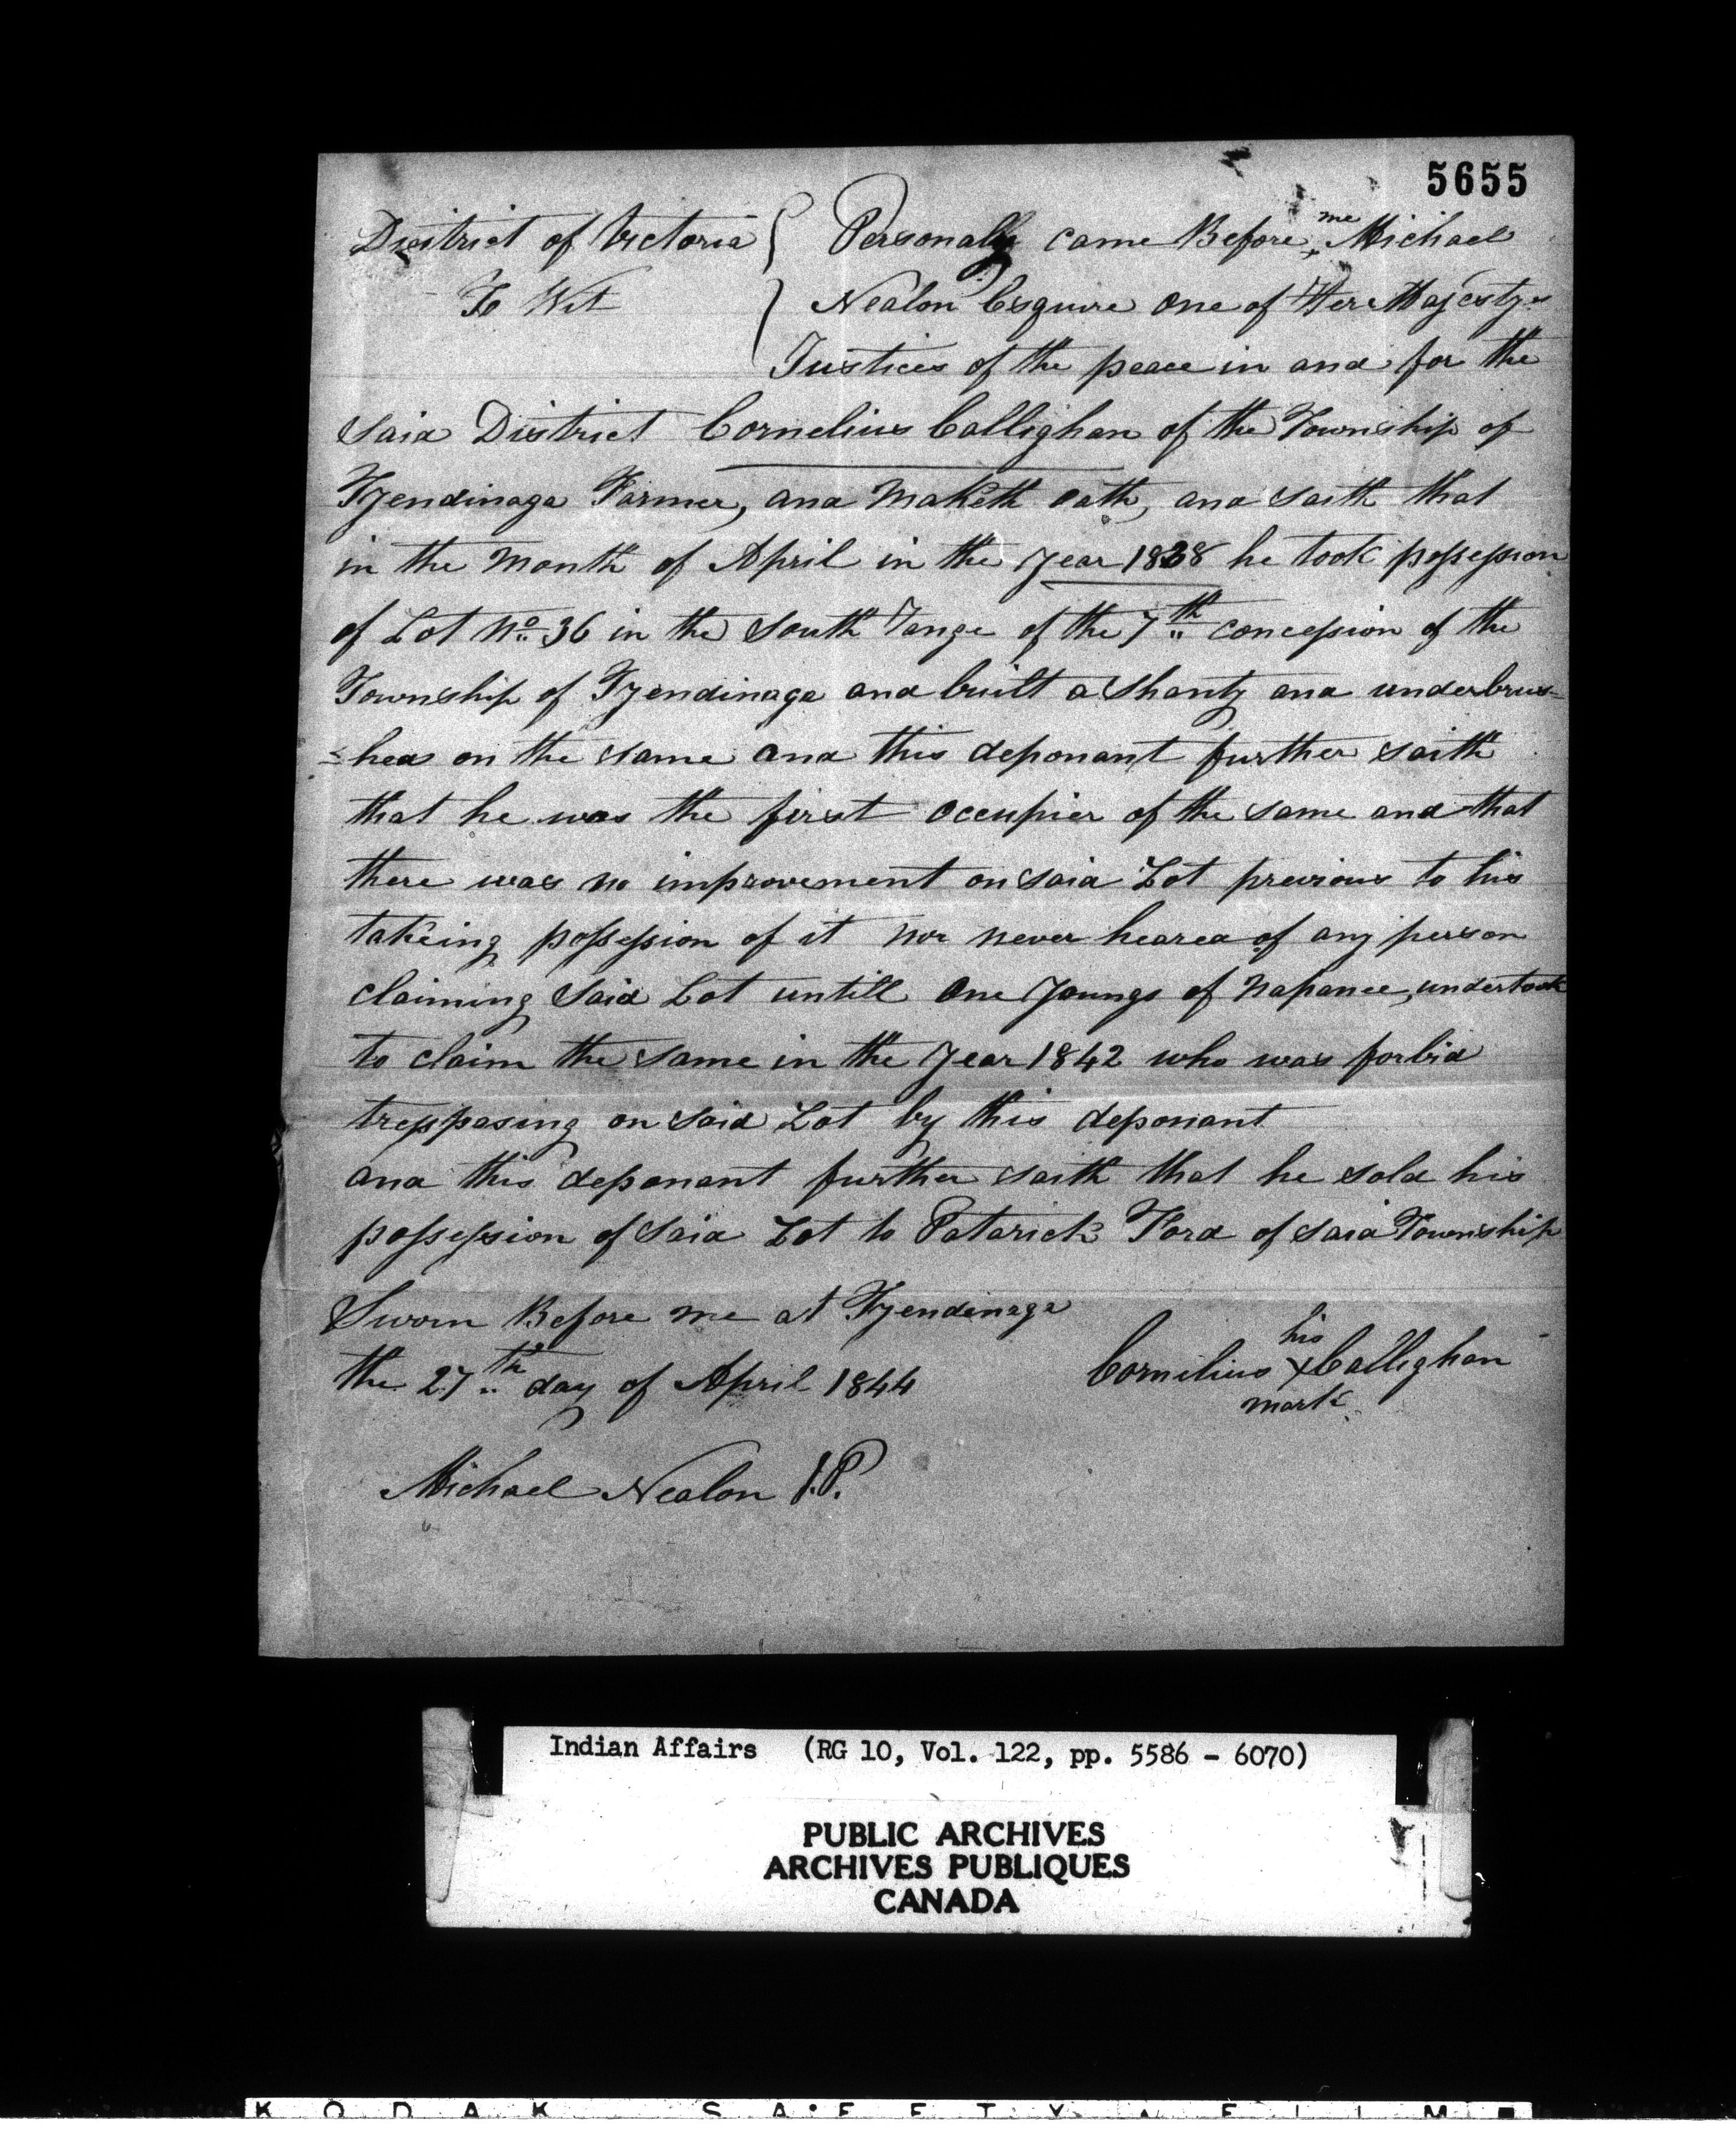 5655
District of Victoria { Personally came Before me Michael
To Wit } Nealon Esquire one of Her Majestys
Justices of the peace in and for the
said District Cornelius Callighan of the Township of
Tyendinaga Farmer, and Maketh oath, and saith that
in the Month of April in the year 1838 he took possession
of Lot No. 36 in the South range of the 7th concession of the
Township of Tyendinaga and built a Shanty and underbrus=
=hed on the same and this deponant further saith
that he was the first occupier of the same and that
there was no improvement on said Lot previous to his
takeing possession of it nor never heared of any person
claiming said Lot untill One Youngs of Napanee, undertook
to claim the same in the year 1842 who was forbid
tresspasing on said Lot by this deponant
and this deponant further saith that he sold his
possession of said Lot to Patarick Ford of said Township
Sworn Before me at Tyendenaga
the 27th day of April 1844
his
Cornilius X Callighan
mark
Michael Nealon J.P.
Indian Affairs (RG 10, Vol. 122, pp. 5586 - 6070)
PUBLIC ARCHIVES
ARCHIVES PUBLIQUES
CANADA
KODAK SAFETY FILM